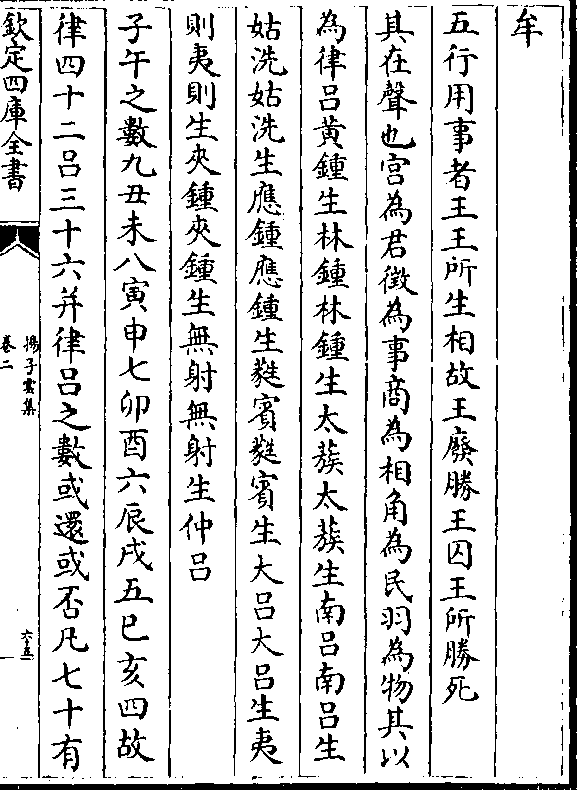 牟
五行用事者王王所生相故王廢勝王囚王所勝死
其在聲也宫為君徵為事商為相角為民羽為物其以
為律呂黄鍾生林鍾林鍾生太蔟太蔟生南呂南呂生
姑洗姑洗生應鍾應鍾生蕤賓蕤賓生大呂大呂生夷
則夷則生夾鍾夾鍾生無射無射生仲呂
子午之數九丑未八寅申七卯酉六辰戌五巳亥四故
律四十二呂三十六并律呂之數或還或否凡七十有
欽定四庫全書
揚子雲集
卷二
六五